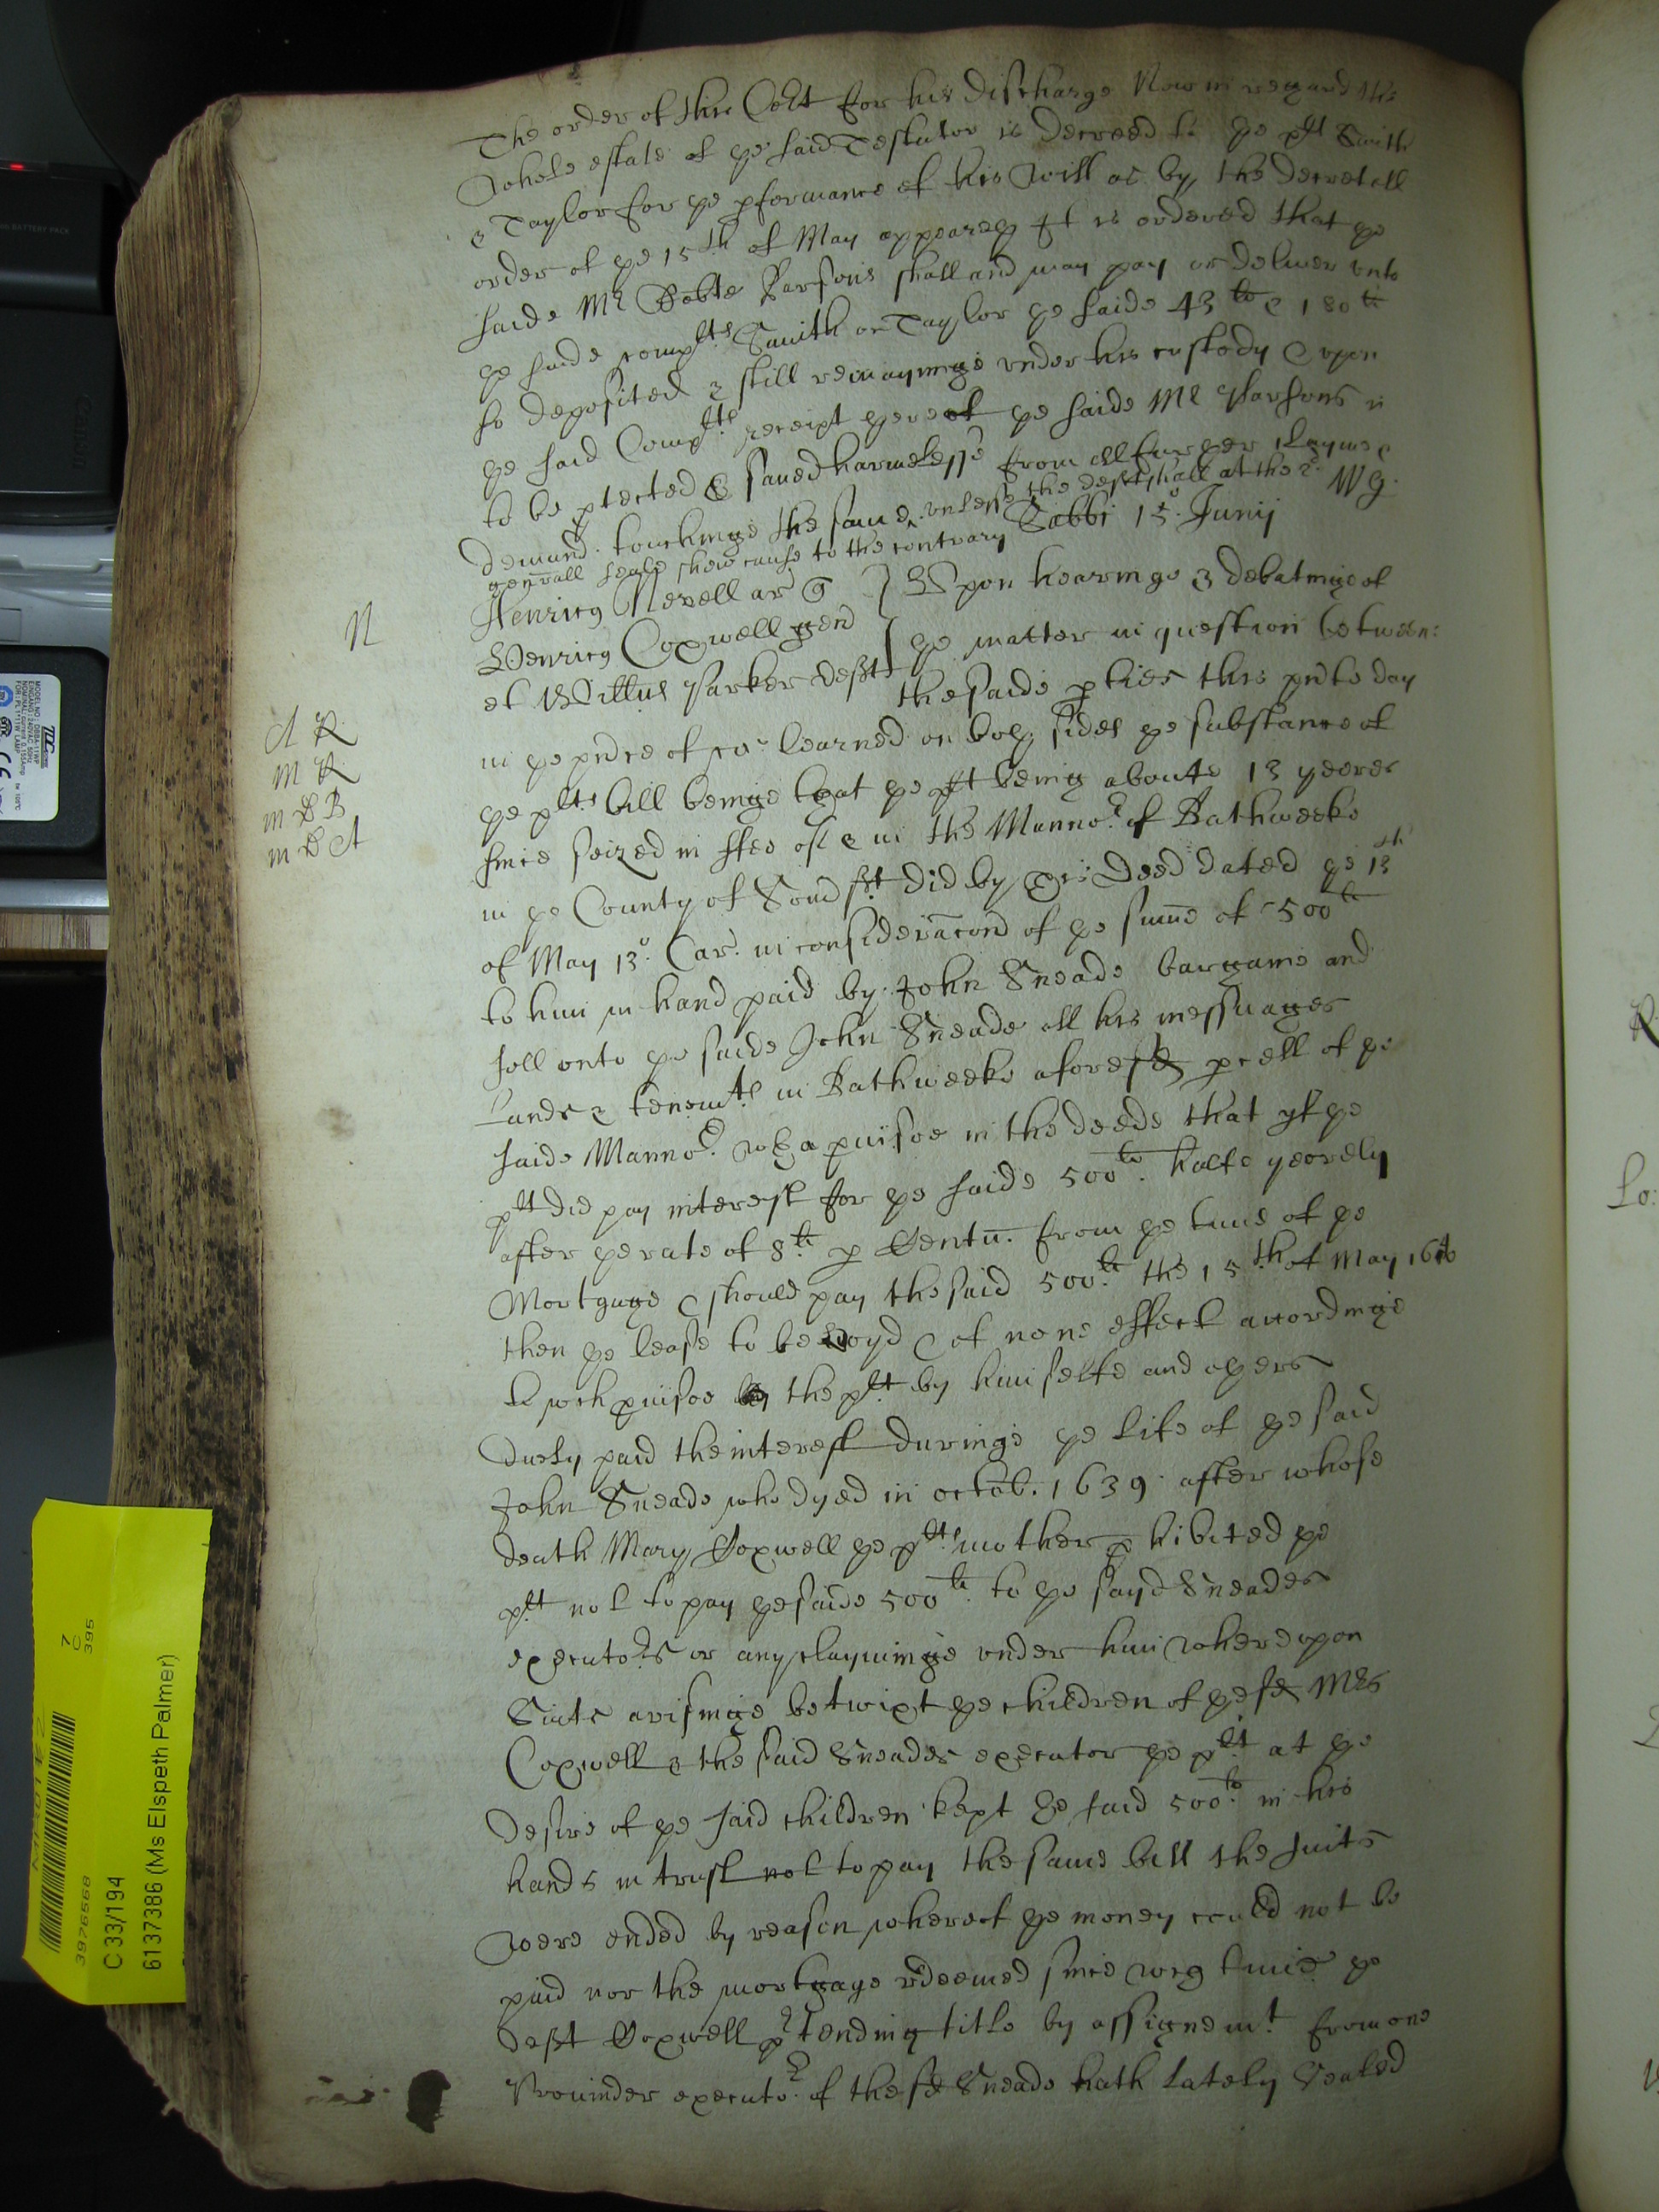 The order of this Co:rt for his discharge Now in regard the
whole estate of ye said Testator is decreed to ye plt Smith
& Taylor for ye pformance of his Will as by the decretall
order of ye 15th of May appeareth It is ordered that ye
saide Mr Parsons shall and may pay or deliver vnto
ye saide complts Smith or Taylor ye saide 43li & 180li
so deposited & still remayninge vnder his custody & vpon
ye said Complts receipt yereof ye saide Mr Parsons is
to be ptected & saued harmelesse from all furyer clayme &
demand touchinge the same vnlesse the deft shall at the 2o
genrall seale shew cause to the contrary Sabbi 15o Junij W G.
N
Henricus Nevell ar q
Henricus Coxwell gen
et Willus Parker defts
Vpon hearinge & debatinge of
ye matter in question betweene
the saide pties this pnte day
in ye pnce of co: learned on boy sides ye substance of
ye plts bill beinge that ye plt being aboute 13 yeeres
since seized in ffee of & in the Mannor of Bathweeke
in ye County of Somst did by Deed dated ye 13th
of May 13o Car. in consideracon of ye sume of 500li
to him in hand paid by John Sneade bargaine and
sell vnto ye saide John Sneade all his messuages
Lands & tenemts in Bathweeke aforesd pcell of ye
saide Mannor wth a puisoe in the deede that yf ye
plt did pay interest for ye saide 500li halfe yeerely
after ye rate of 8li p Centu. from ye time of ye
Mortgage & should pay the said 500li the 15th of May 1640
then ye lease to be voyd & of none effect accordinge
to wch puisoe the plt by himselfe and oyers
duely paid the interest duringe ye life of ye said
John Sneade who dyed in octob. 1639 after whose
death Mary Coxwell ye plts mother phibited ye
plt not to pay ye saide 500li to ye sayd Sneades
executors or any clayminge vnder him wherevpon
Suits arisinge betwixt ye children of ye sd Mrs
Coxwell & the said Sneades executor ye plt at ye
desire of ye said children kept ye said 500li in his
hands in trust not to pay the same till the suits
were ended by reason whereof ye money could not be
paid nor the mortgage redeemed since wch time ye
deft Coxwell ptending title by assignemt from one
Prouinder executor of the sd Sneade hath lately Sealed
A R
M R
m B
m A
C 33/194
6137386 (Ms Elspeth Palmer)
3976568
7
C
395